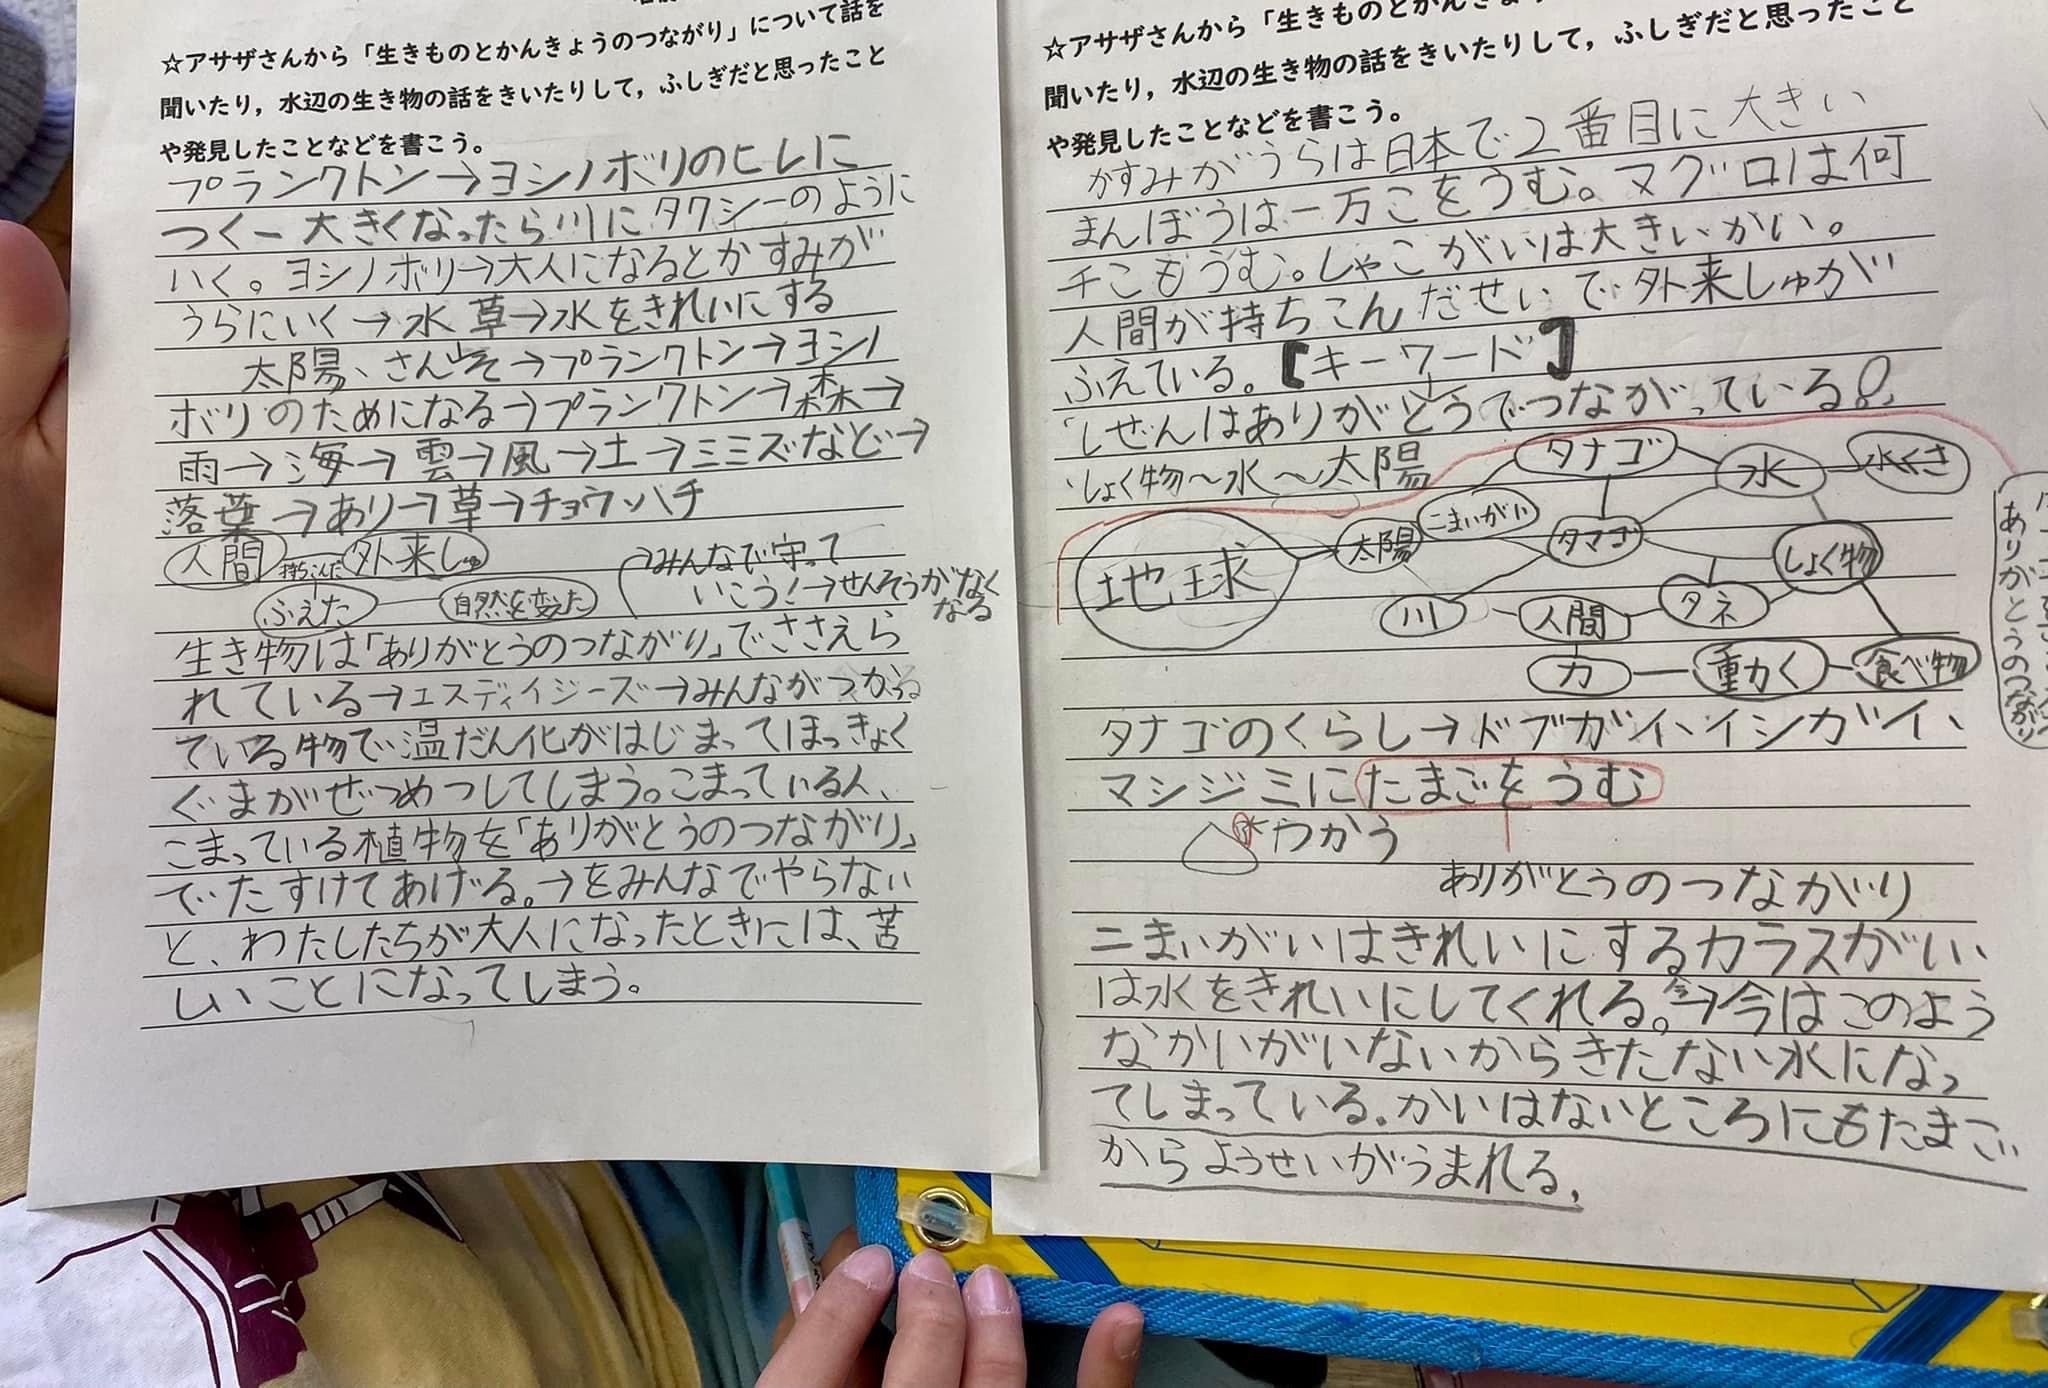 ☆アサザさんから「生きものとかんきょうのつながり」について話を
聞いたり，水辺の生き物の話をきいたりして，ふしぎだと思ったこと
や発見したことなどを書こう。
プランクトン→ヨシノボリのヒレに
つくー大きくなったら川にタクシーのように
いく。ヨシノボリ→大人になるとかすみが
うらにいく→水草→水をきれいにする
太陽、さんそ→プランクトン→ヨシノ
ボリのためになる→プランクトン→森→
雨→海→雲→風→土→ミミズなど→
落葉→あり→草→チョウ、ハチ
人間 持ちこんだ 外来しゅ
ふえた 自然を変えた
→みんなで守って
いこう!→せんそうがなく
なる
生き物は「ありがとうのつながり」でささえら
れている→エスディイジーズ→みんながつかっ
ている物で温だん化がはじまってほっきょく
ぐまがぜつめつしてしまう。こまっている人、
こまっている植物を「ありがとうのつながり」
でたすけてあげる。→をみんなでやらない
と、わたしたちが大人になったときには、苦
しいことになってしまう。
☆アサザさんから「生きものとかんきょう
聞いたり，水辺の生き物の話をきいたりして，ふしぎだと思ったこと
や発見したことなどを書こう。
かすみがうらは日本で2番目に大きい
まんぼうは一万こをうむ。マグロは何
千こもうむ。しゃこがいは大きいかい。
人間が持ちこんだせいで外来しゅが
ふえている。【キーワード】
しぜんはありがとうでつながっている!
しょく物〜水〜太陽
タナゴ 水 水くさ
地球 太陽 二まいがい タマゴ しょく物
川 人間 タネ
力 重力く 食べ物
ありがとうのつながり
タナゴのくらし→ドブガイ、イシガイ、
マシジミにたまごをうむ
水つかう
ありがとうのつながり
二まいがいはきれいにするカラスがい、
は水をきれいにしてくれる。→今はこのよう
なかいがいないからきたない水になっ
てしまっている。かいはないところにもたまご
からようせいがうまれる。